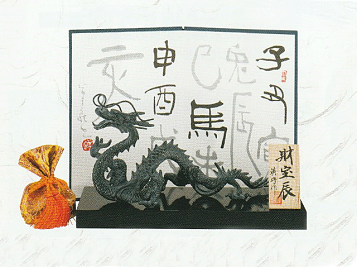 子丑寅
兎辰
巳馬
申酉戌
亥
財宝辰